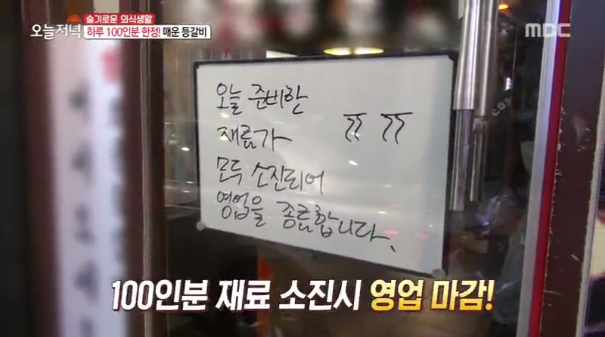 오늘저녁
슬기로운 외식생활
하루 100인분 한정! 매운 등갈비
MBC
오늘 준비한
재료가 ㅠㅠ
모두 소진되어
영업을 종료합니다.
100인분 재료 소진시 영업 마감!